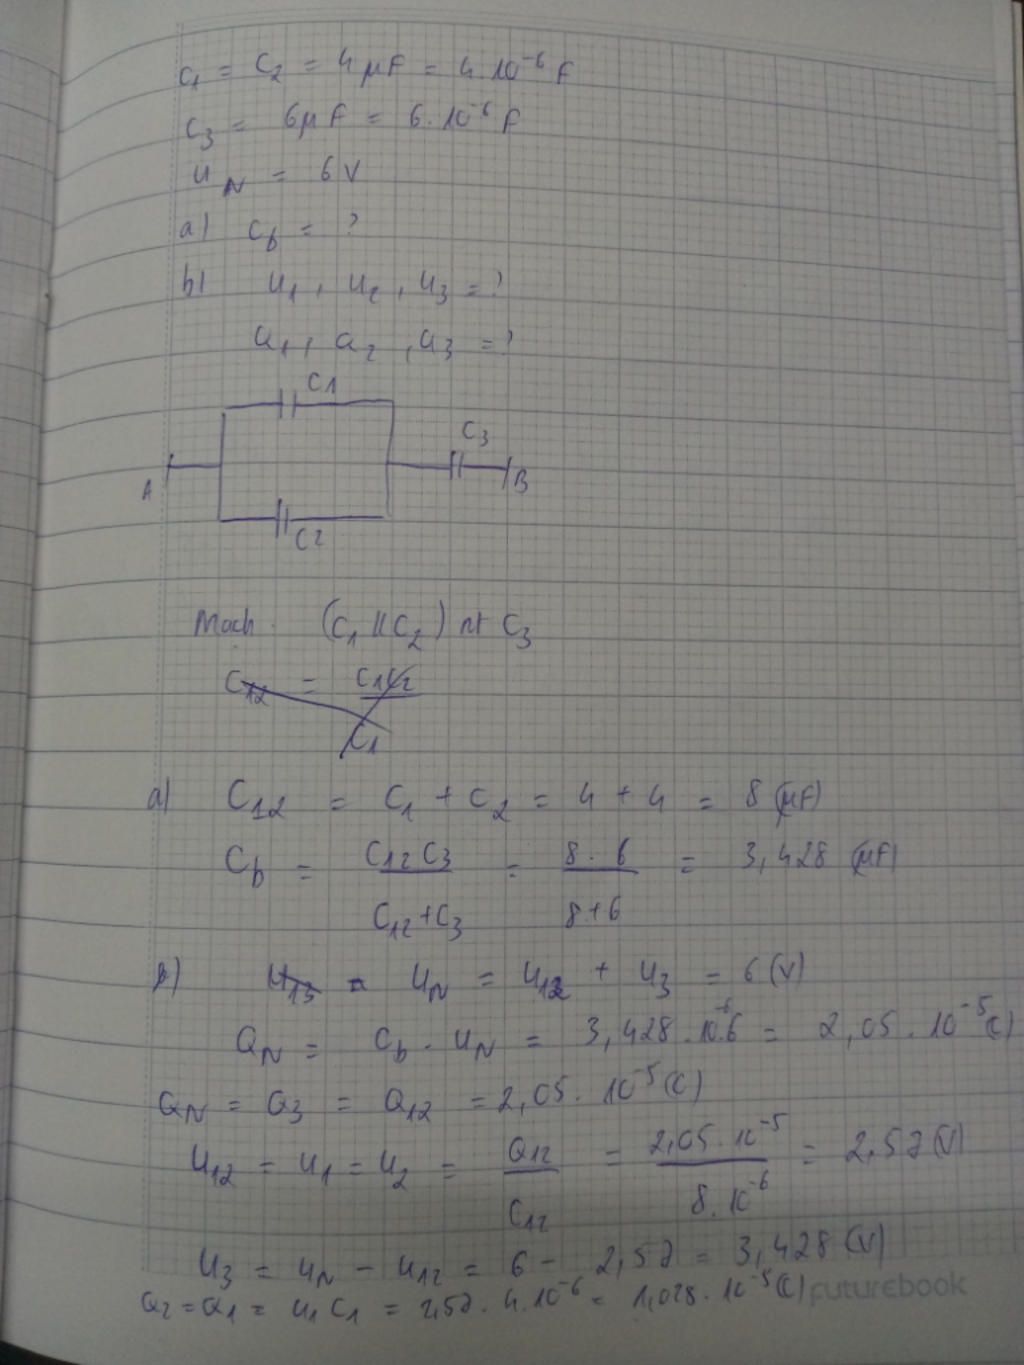 C1 = C2 = 4 μF = 4.10^-6 F
C3 = 6μF = 6.10^-6 F
UN = 6V
a) Cb = ?
b) U1, U2, U3 = ?
Q1, Q2, Q3 = ?
C1
C3
A
B
C2
Mach (C1 // C2) nt C3
C12 = C1C2
C1
a) C12 = C1 + C2 = 4 + 4 = 8 (μF)
Cb = C12 C3 / C12+C3 = 8.6 / 8+6 = 3,428 (μF)
b) U13 = UN = U12 + U3 = 6 (V)
QN = Cb . UN = 3,428.10^-6.6 = 2,05.10^-5 (C)
QN = Q3 = Q12 = 2,05.10^-5 (C)
U12 = U1 = U2 = Q12 / C12 = 2,05.10^-5 / 8.10^-6 = 2,57 (V)
U3 = UN - U12 = 6 - 2,57 = 3,428 (V)
Q2 = Q1 = U1 C1 = 2,57.4.10^-6 = 1,028.10^-5 (C)
futurebook